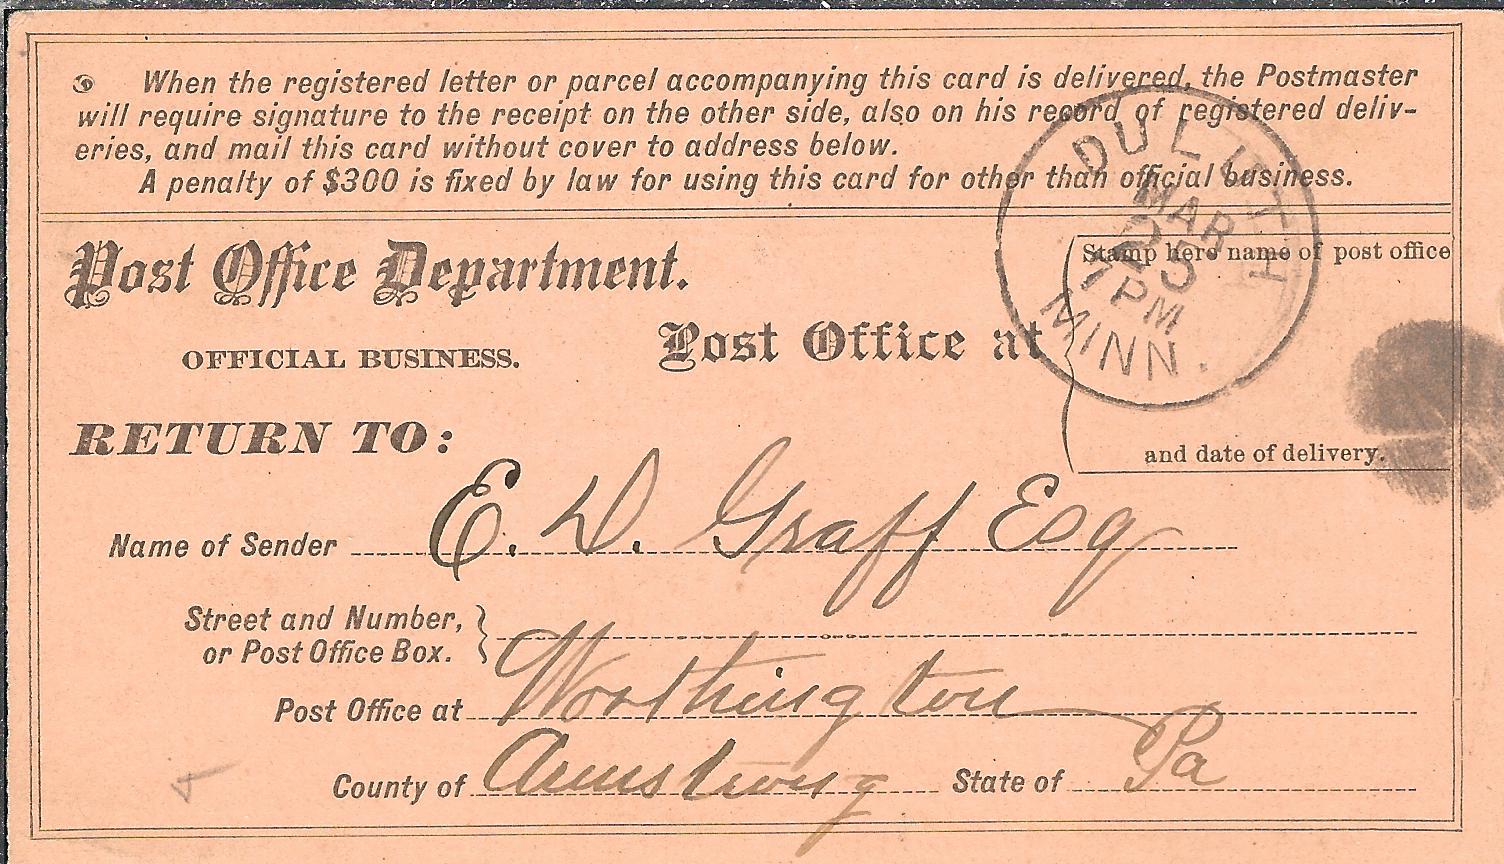 When the registered letter or parcel accompanying this card is delivered, the Postmaster
will require signature to the receipt on the other side, also on his record of registered deliv-
eries, and mail this card without cover to address below.
A penalty of $300 is fixed by law for using this card for other than official business.
DULUTH
MAR
25
7 PM
MINN.
Post Office Department.
OFFICIAL BUSINESS.
Post Office at
Stamp here name of post office
and date of delivery.
RETURN TO:
Name of Sender E. D. Graff Esq
Street and Number,
or Post Office Box.
Post Office at Worthington
County of Armstrong State of Pa